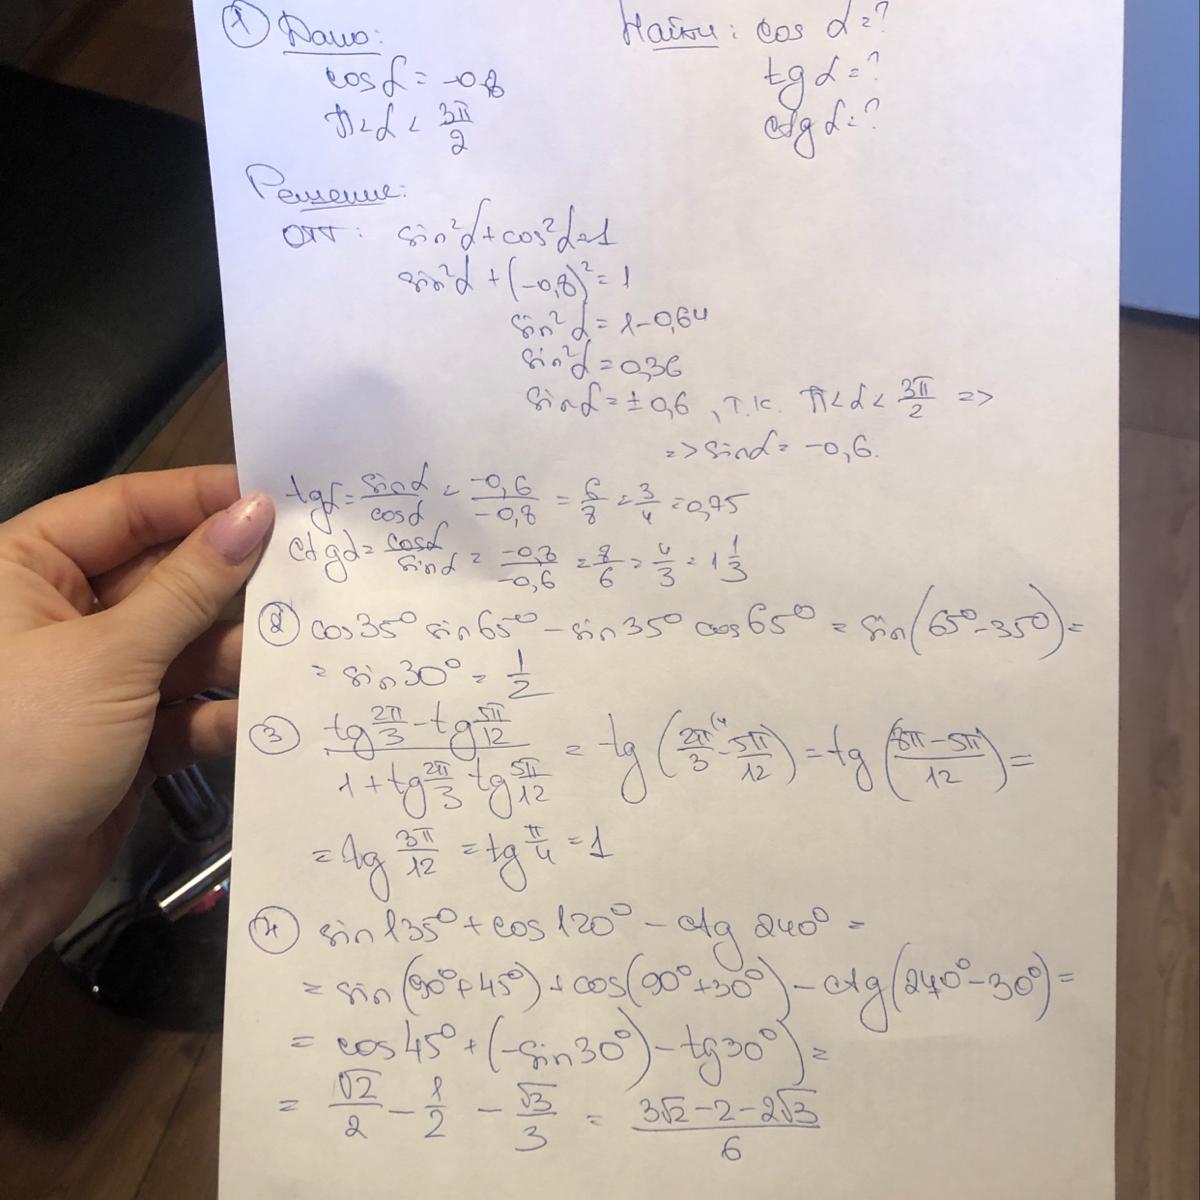 1 Дано: Найти: cos α=?
cosα = -0,8 tg α=?
π<α< 3π/2 ctg α=?
Решение:
ОТТ: sin²α+cos²α=1
sin²α + (-0,8)²=1
sin²α=1-0,64
sin²α=0,36
sinα=±0,6, т.к. π<α< 3π/2 =>
=> sinα= -0,6.
tgα= sinα/cosα = -0,6/-0,8 = 6/8 = 3/4 =0,75
ctgα= cosα/sinα = -0,8/-0,6 = 8/6 = 4/3 = 1 1/3
2 cos35° sin65° - sin35° cos65° = sin(65°-35°)=
= sin30° = 1/2
3 (tg 2π/3 - tg 5π/12)/(1+tg 2π/3 tg 5π/12) = tg (2π/3 (4 - 5π/12) = tg (8π-5π/12) =
= tg 3π/12 = tg π/4 = 1
4 sin135°+cos120° - ctg 240° =
= sin(90°+45°)+cos(90°+30°) - ctg(240°-30°)=
= cos45°+(-sin30°)-tg30°)=
= √2/2 - 1/2 - √3/3 = (3√2-2-2√3)/6